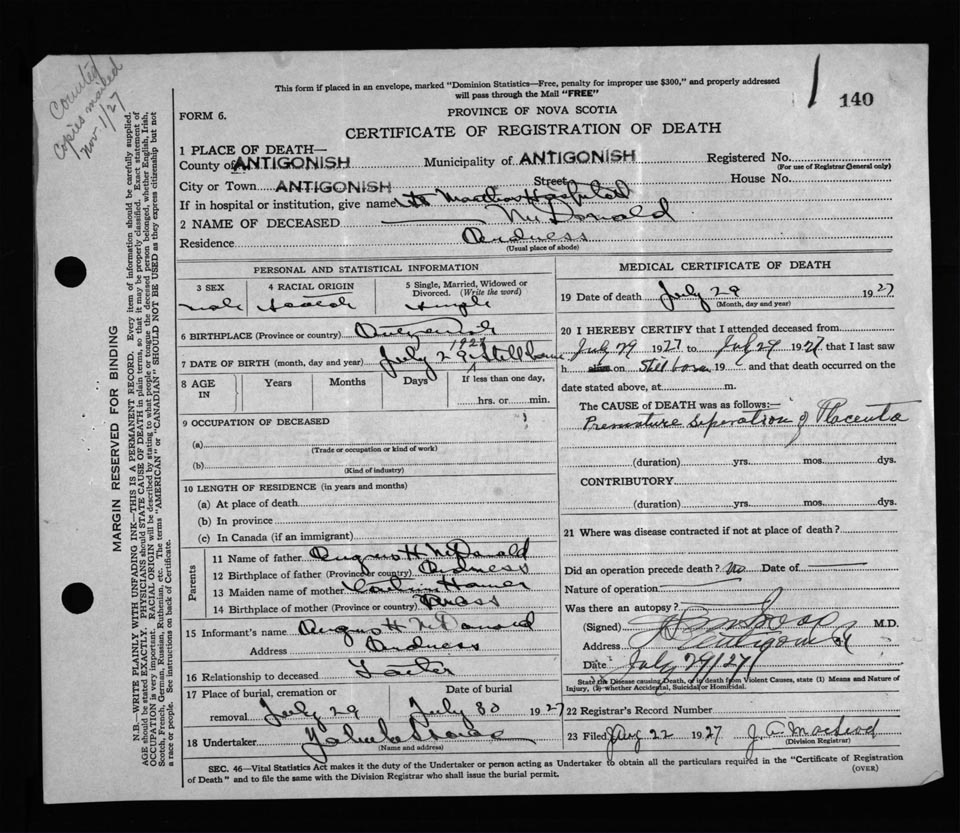 Counted
Copies mailed
Nov 1/27
This form if placed in an envelope, marked "Dominion Statistics—Free, penalty for improper use $300," and properly addressed
will pass through the Mail "FREE"
1 140
FORM 6.
PROVINCE OF NOVA SCOTIA
CERTIFICATE OF REGISTRATION OF DEATH
1 PLACE OF DEATH—
County of ANTIGONISH Municipality of ANTIGONISH Registered No.
(For use of Registrar General only)
City or Town ANTIGONISH Street House No.
If in hospital or institution, give name St Marthas Hospital
2 NAME OF DECEASED McDonald
Residence
(Usual place of abode)
PERSONAL AND STATISTICAL INFORMATION
3 SEX 4 RACIAL ORIGIN 5 Single, Married, Widowed or
Divorced. (Write the word)
male Scotch Single
6 BIRTHPLACE (Province or country) Antigonish
7 DATE OF BIRTH (month, day and year) July 29 1927 Stillborn
8 AGE IN Years Months Days If less than one day,
hrs. or min.
9 OCCUPATION OF DECEASED
(a)
(Trade or occupation or kind of work)
(b)
(Kind of industry)
10 LENGTH OF RESIDENCE (in years and months)
(a) At place of death
(b) In province
(c) In Canada (if an immigrant)
Parents
11 Name of father Angus H McDonald
12 Birthplace of father (Province or country)
13 Maiden name of mother
14 Birthplace of mother (Province or country)
15 Informant's name Angus H McDonald
Address
16 Relationship to deceased Father
17 Place of burial, cremation or Date of burial
removal July 29 July 30 1927
18 Undertaker
(Name and address)
MEDICAL CERTIFICATE OF DEATH
19 Date of death July 29 1927
(Month, day and year)
20 I HEREBY CERTIFY that I attended deceased from
July 29 1927 to July 29 1927 that I last saw
h alive on Stillborn 19 and that death occurred on the
date stated above, at m.
The CAUSE OF DEATH was as follows:—
Premature Seperation of Placenta
(duration) yrs. mos. dys.
CONTRIBUTORY
(duration) yrs. mos. dys.
21 Where was disease contracted if not at place of death?
Did an operation precede death? No Date of
Nature of operation
Was there an autopsy?
(Signed) M.D.
Address Antigonish
Date July 29/27
State the Disease causing Death, or in death from Violent Causes, state (1) Means and Nature of
Injury, (2) whether Accidental, Suicidal or Homicidal.
22 Registrar's Record Number
23 Filed Aug 22 1927 J. A. MacLeod
(Division Registrar)
SEC. 46—Vital Statistics Act makes it the duty of the Undertaker or person acting as Undertaker to obtain all the particulars required in the "Certificate of Registration
of Death" and to file the same with the Division Registrar who shall issue the burial permit. (OVER)
MARGIN RESERVED FOR BINDING
N.B.—WRITE PLAINLY WITH UNFADING INK—THIS IS A PERMANENT RECORD. Every item of information should be carefully supplied.
AGE should be stated EXACTLY. PHYSICIANS should STATE CAUSE OF DEATH in plain terms, so that it may be properly classified. Exact statement of
OCCUPATION is very important. RACIAL ORIGIN will be described by stating to what people or tongue the deceased person belonged, whether English, Irish,
Scotch, French, German, Russian, Ruthenian, etc. The terms "AMERICAN" or "CANADIAN" SHOULD NOT BE USED as they express citizenship but not
a race or people. See instructions on back of Certificate.